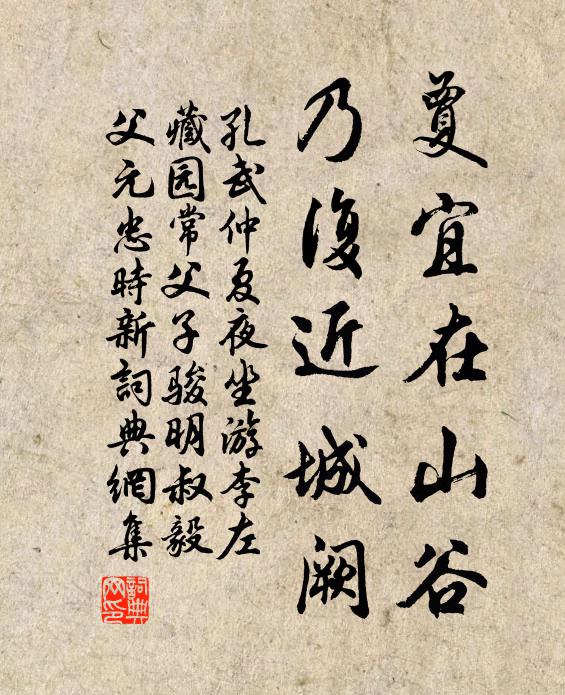 夏宜在山谷
乃復近城阙
孔武仲夏夜坐游李左
藏园常父子骏明叔毅
父元忠時新詞典網集
詞典网印